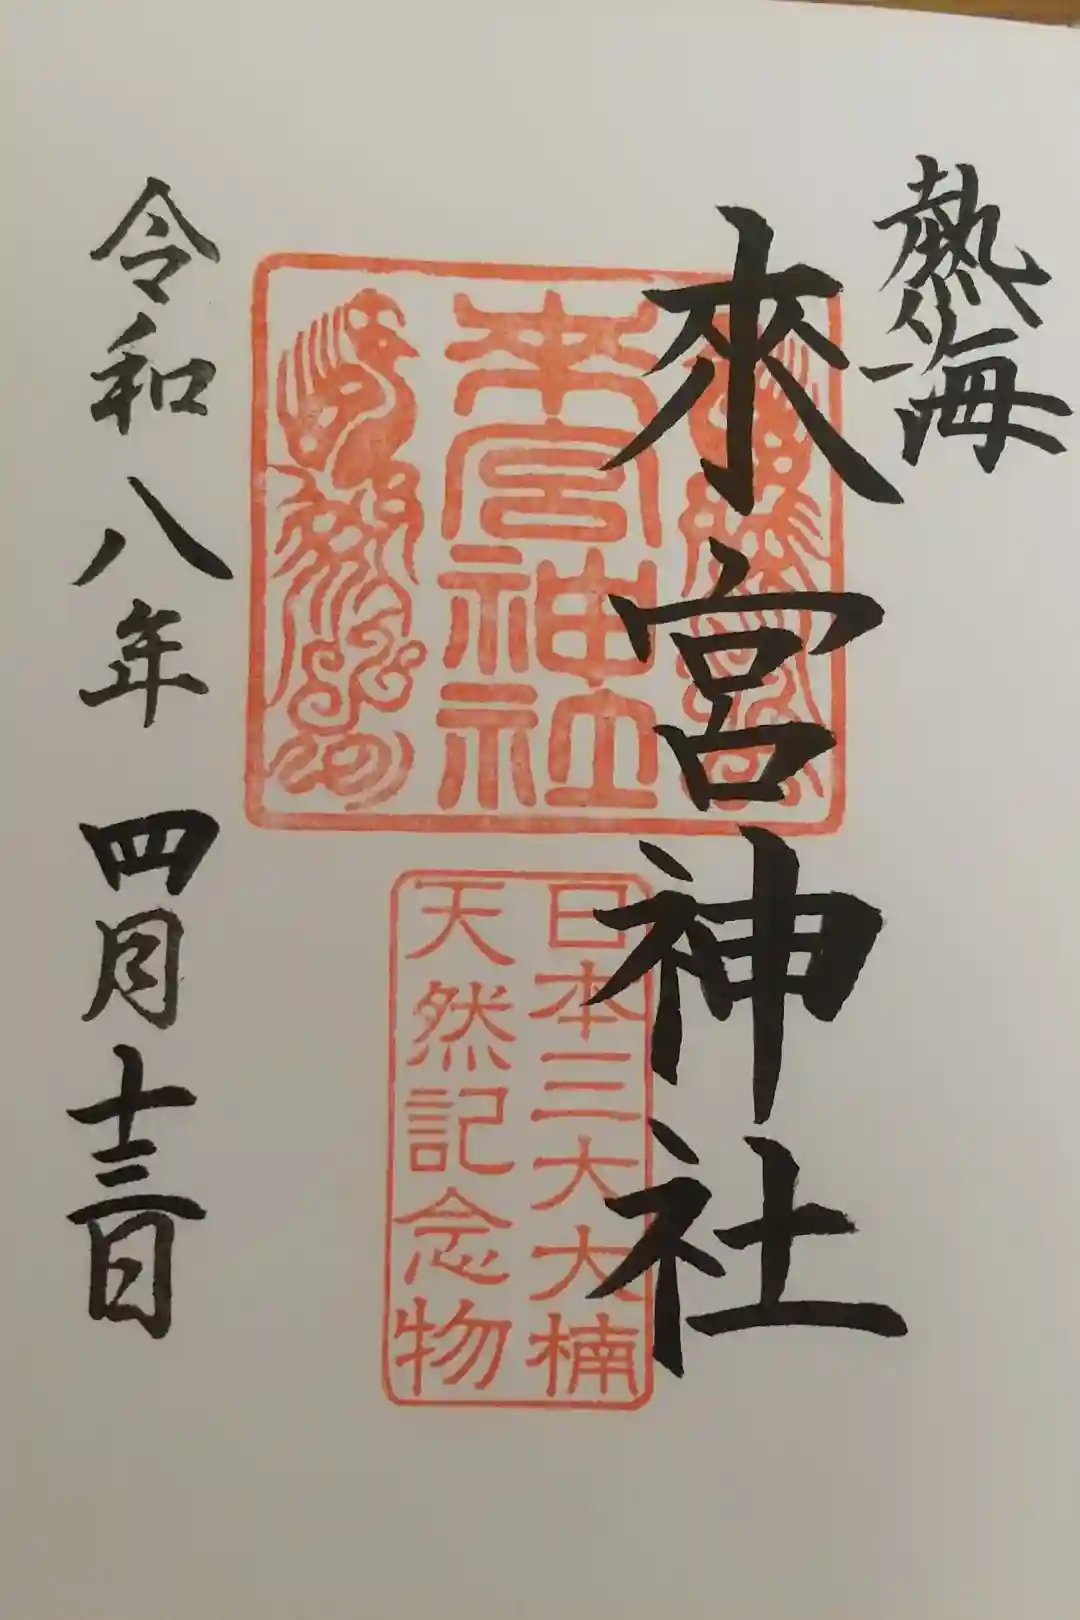 熱海
來宮神社
来宮神社
日本三大大楠
天然記念物
令和八年四月十三日